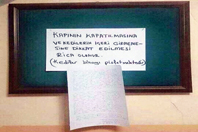 KAPININ KAPATILMASINA
VE KEDİLERİN İÇERİ GİRMEME-
SİNE DİKKAT EDİLMESİ
RİCA OLUNUR.
(Kediler